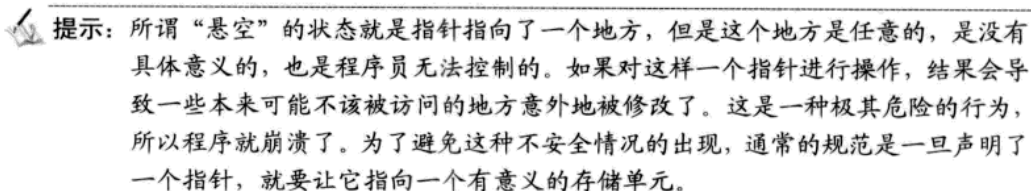 提示：所谓“悬空”的状态就是指针指向了一个地方，但是这个地方是任意的，是没有
具体意义的，也是程序员无法控制的。如果对这样一个指针进行操作，结果会导
致一些本来可能不该被访问的地方意外地被修改了。这是一种极其危险的行为，
所以程序就崩溃了。为了避免这种不安全情况的出现，通常的规范是一旦声明了
一个指针，就要让它指向一个有意义的存储单元。